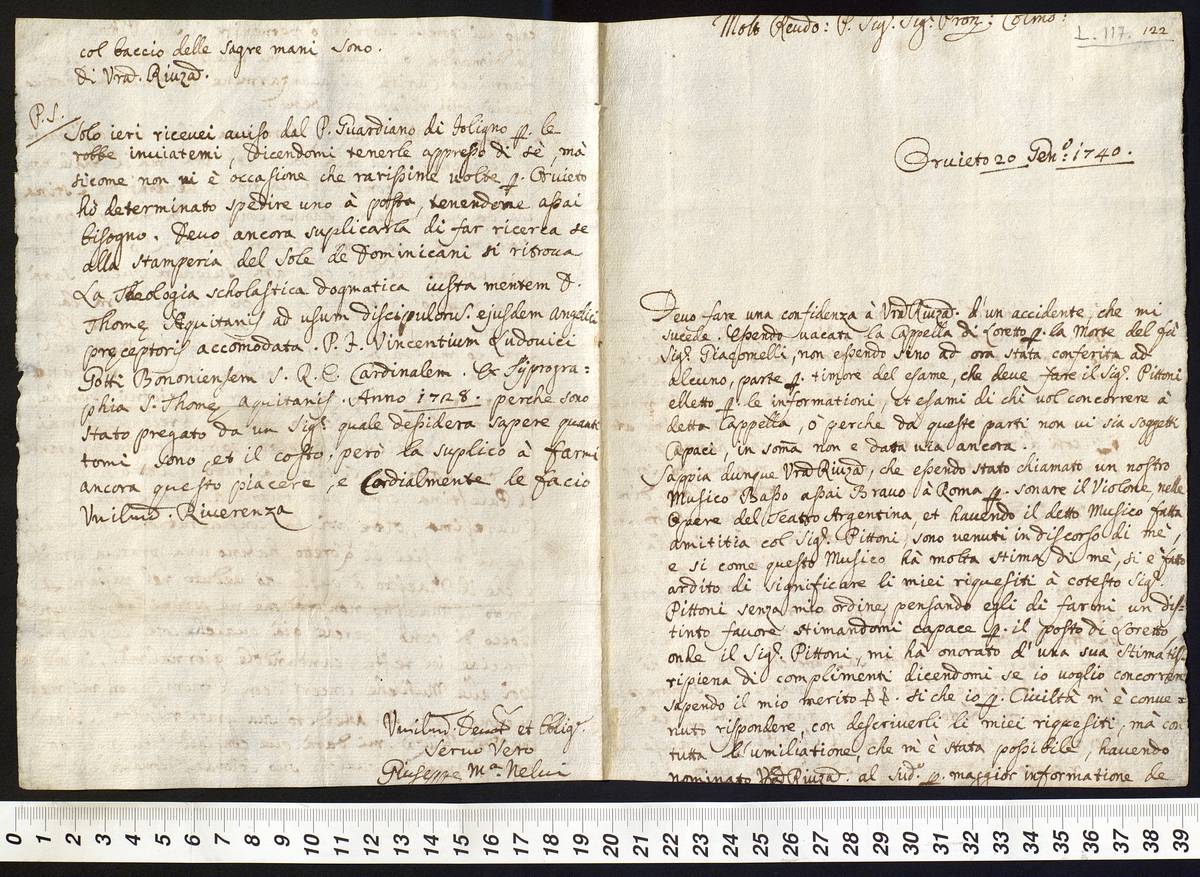 col baccio delle sagre mani sono.
di Vrã. Riuzã.
P.S.
Solo ieri riceuei auiso dal P. Guardiano di foligno p. le
robbe inuiatemi, dicendomi tenerle appresso di sè, mà
sicome non vi è occasione che rarissime uolte p. Oruieto
hò determinato spedire uno à posta, tenendome assai
bisogno. Deuo ancora suplicarla di far ricerca se
alla stamperia del Sole de Dominicani si ritroua
La Theologia scholastica dogmatica iusta mentem D.
Thomę Aquitanis ad usum discipulorũ. ejusdem angelici
pręceptoris accomodata. P. F. Vincentium Ludouici
Gotti Bononiensem S. R. E. Cardinalem. Ex Typogra=
phia S. Thomę Aquitanis. Anno 1728. perche sono
stato pregato da un Sigr. quale desidera sapere quanti
tomi, sono, et il costo; però la suplico à farmi
ancora questo piacere, e Cordialmente le facio
Vmilmã. Riuerenza
Vmilmã Deuot et Obligr.
Seruo Vero
Giuseppe Ma. Nelui
Molt Reudo: P. Sigr. Sigr. Pron: Colmo:
L. 117. 122
Oruieto 20 Gen°: 1740.
Deuo fare una confidenza à Vrã Riuzã. d'un accidente, che mi
sucede. Essendo uacata la Cappella di Loretto p. la Morte del fù
Sigr. Giacomelli, non essendo sino ad ora stata conferita ad
alcuno, parte p. timore del esame, che deue fare il Sigr. Pittoni
elletto p. le informationi, et esami di chi uol concorrere à
detta Cappella, ò perche da queste parti non ui sia soggetti
Capaci, in som̃a non e data uia ancora.
Sappia dunque Vrã Riuzã, che essendo stato chiamato un nostro
Musico Basso assai Brauo à Roma p. sonare il Violone nelle
Opere del Teatro Argentina, et hauendo il detto Musico fatta
amititia col Sigr. Pittoni sono uenuti in discorso di mè,
e si come questo Musico hà molta stima di mè, si è fatto
ardito di significare li miei riquesiti à cotesto Sigr.
Pittoni senza mio ordine, pensando egli di farmi un dis=
tinto fauore stimandomi capace p. il posto di Loretto
onde il Sigr. Pittoni, mi hà onorato d'una sua stimatis:
ripiena di complimenti dicendomi se io uoglio concorrere
sapendo il mio merito. Si che io p. Ciuiltà m'è conue=
nuto rispondere, con descriuerli li miei riquesiti, mà con
tutta l'umiliatione, che m'è stata possibile, hauendo
nominato Vrã Riuzã. al sud°. p. maggior informatione de